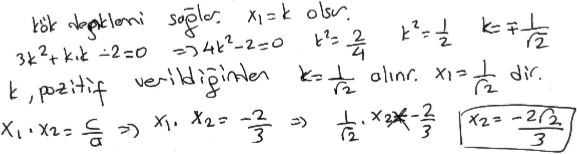 kök denklemi sağlar. x₁=k olsun.
3k²+k.k-2=0 ⇒ 4k²-2=0 k²=2/4 k²=1/2 k=∓1/√2
k, pozitif verildiğinden k=1/√2 alınır. x₁=1/√2 dir.
x₁.x₂=c/a ⇒ x₁.x₂=-2/3 ⇒ 1/√2.x₂=-2/3 x₂=-2√2/3